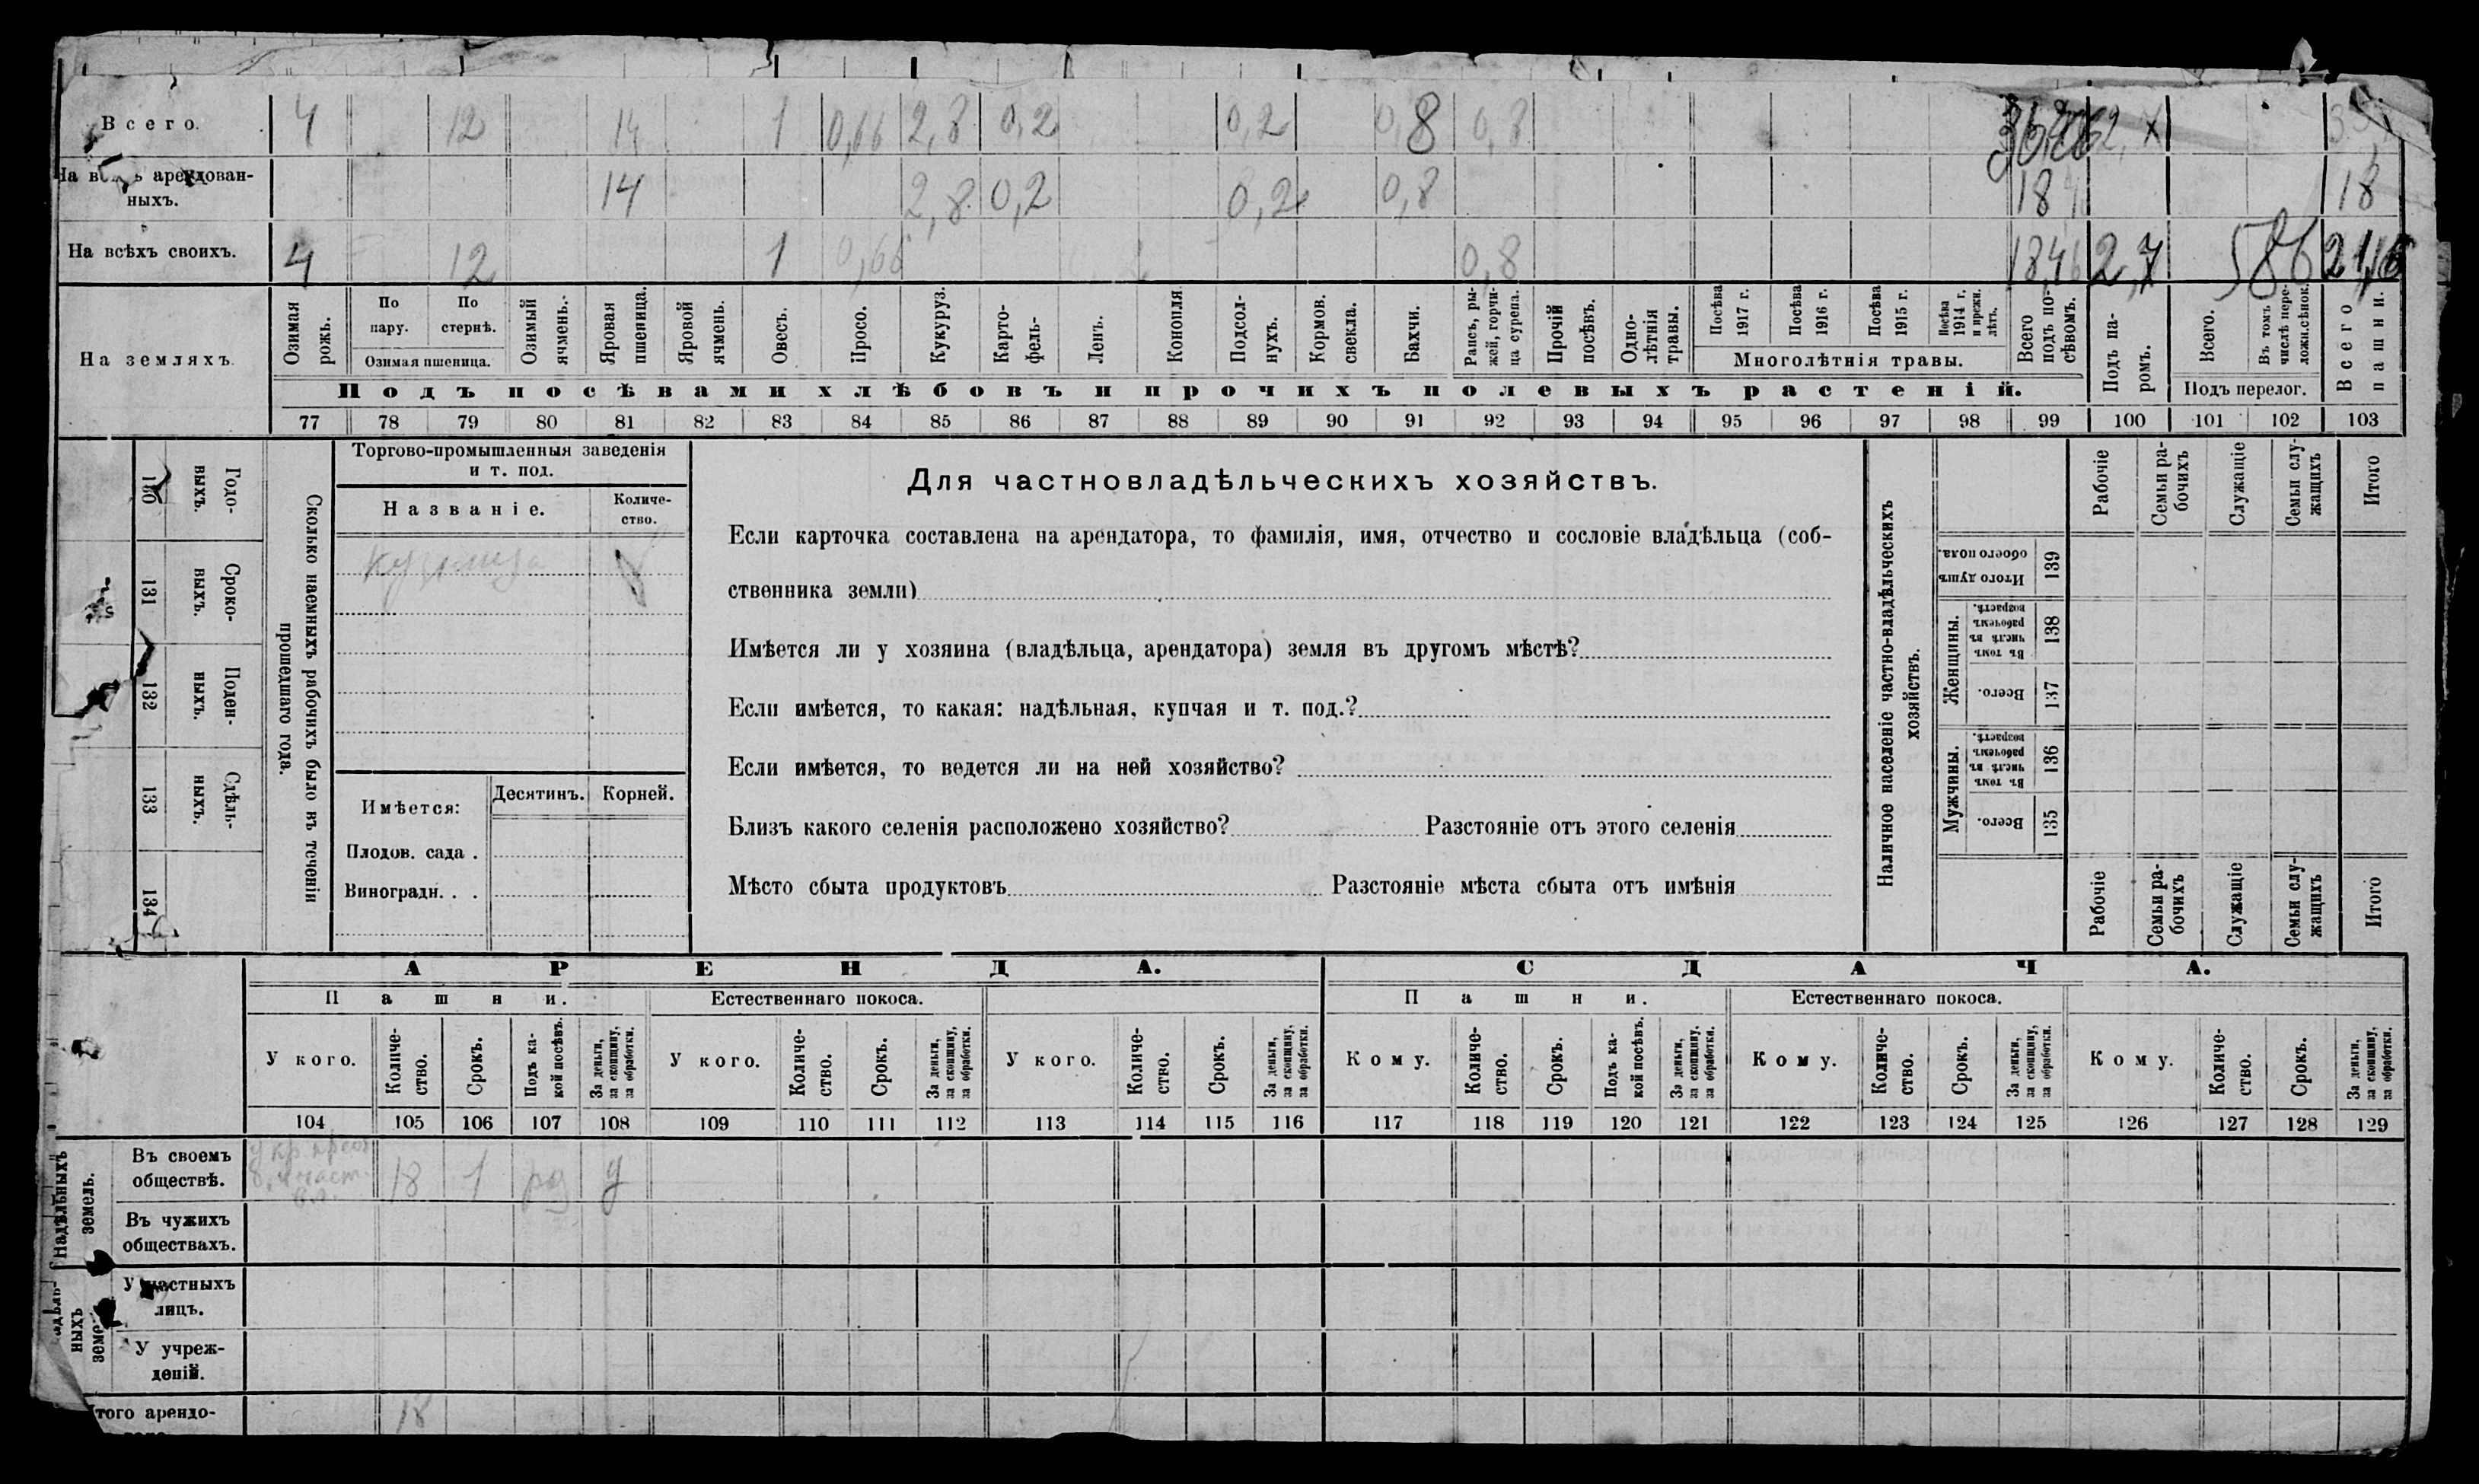 Всего. 4 12 14 1 0,66 2,8 0,2 0,2 0,8 0,8
На всѣхъ арендован-
ныхъ. 14 2,8 0,2 0,2 0,8 18 18
На всѣхъ своихъ. 4 12 1 0,66 0,8 18,46 2,7 586
На земляхъ.
Озимая рожь.
По пару.
По стернѣ.
Озимая пшеница.
Озимый ячмень.
Яровая пшеница.
Яровой ячмень.
Овесъ.
Просо.
Кукуруз.
Карто-
фель-
Ленъ.
Конопля
Подсол-
нухъ.
Кормов.
свекла.
Бахчи.
Рапсъ, ры-
жей, горчи-
ца сурепа.
Прочій
посѣвъ.
Одно-
лѣтнія
травы.
Посѣва
1917 г.
Посѣва
1916 г.
Посѣва
1915 г.
Посѣва
1914 г.
и прежн.
лѣтъ.
Многолѣтнія травы.
Всего
подъ по-
сѣвомъ.
Подъ па-
ромъ.
Всего.
Въ томъ
числѣ пере-
ложн.сѣнок.
Подъ перелог.
Всего
пашни.
Подъ посѣвами хлѣбовъ и прочихъ полевыхъ растеній.
77 78 79 80 81 82 83 84 85 86 87 88 89 90 91 92 93 94 95 96 97 98 99 100 101 102 103
Сколько наемныхъ рабочихъ было въ теченіи
прошедшаго года.
Годо-
выхъ.
130
Сроко-
выхъ.
131
Поден-
ныхъ.
132
Сдѣль-
ныхъ.
133
134
Торгово-промышленныя заведенія
и т. под.
Названіе.
Количе-
ство.
Имѣется:
Десятинъ. Корней.
Плодов. сада .
Виноградн. . .
Для частновладѣльческихъ хозяйствъ.
Если карточка составлена на арендатора, то фамилія, имя, отчество и сословіе владѣльца (соб-
ственника земли)
Имѣется ли у хозяина (владѣльца, арендатора) земля въ другомъ мѣстѣ?
Если имѣется, то какая: надѣльная, купчая и т. под.?
Если имѣется, то ведется ли на ней хозяйство?
Близъ какого селенія расположено хозяйство? Разстояніе отъ этого селенія
Мѣсто сбыта продуктовъ Разстояніе мѣста сбыта отъ имѣнія
Наличное населеніе частно-владѣльческихъ
хозяйствъ.
Рабочіе
Семьи ра-
бочихъ
Служащіе
Семьи слу-
жащихъ
Итого
Итого душъ
обоего пола.
139
Женщины.
Въ томъ
числѣ въ
рабочемъ
возрастѣ.
138
Всего.
137
Мужчины.
Въ томъ
числѣ въ
рабочемъ
возрастѣ.
136
Всего.
135
Рабочіе
Семьи ра-
бочихъ
Служащіе
Семьи слу-
жащихъ
Итого
АРЕНДА. СДАЧА.
Пашни. Естественнаго покоса. Пашни. Естественнаго покоса.
У кого.
Количе-
ство.
Срокъ.
Подъ ка-
кой посѣвъ.
За деньги,
за скопщину,
за обработки.
У кого.
Количе-
ство.
Срокъ.
За деньги,
за скопщину,
за обработки.
У кого.
Количе-
ство.
Срокъ.
За деньги,
за скопщину,
за обработки.
Кому.
Количе-
ство.
Срокъ.
Подъ ка-
кой посѣвъ.
За деньги,
за скопщину,
за обработки.
Кому.
Количе-
ство.
Срокъ.
За деньги,
за скопщину,
за обработки.
Кому.
Количе-
ство.
Срокъ.
За деньги,
за скопщину,
за обработки.
104 105 106 107 108 109 110 111 112 113 114 115 116 117 118 119 120 121 122 123 124 125 126 127 128 129
Надѣльныхъ
земель.
Въ своемъ
обществѣ. 18 1
Въ чужихъ
обществахъ.
ныхъ
У частныхъ
лицъ.
У учреж-
деній.
Итого арендо- 18